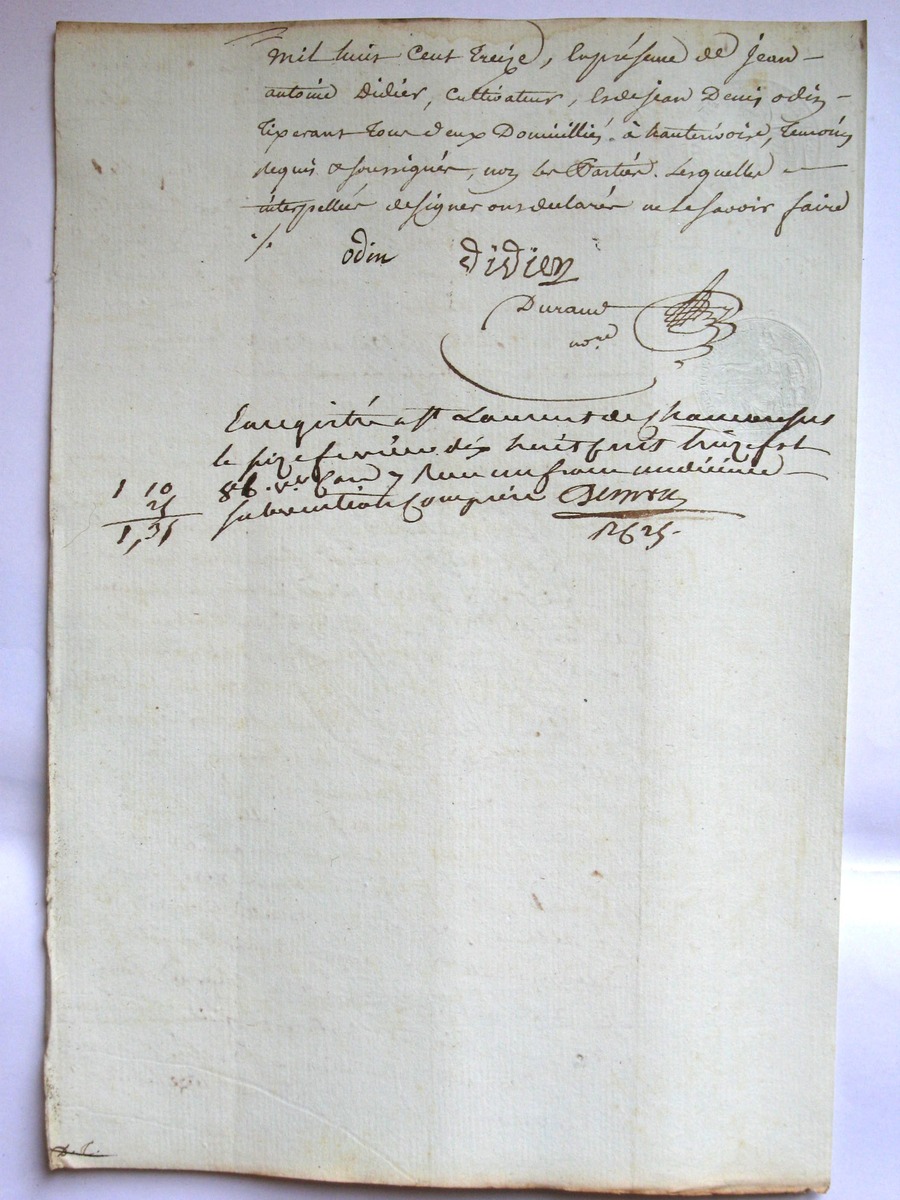 mil huit Cent treize, En présence de jean
antoine Didier, Cultivateur, & de jean Denis odin
tixerant tous deux Domiciliés à hauterivoire, temoins
requis & soussignés, non les Parties. Lesquelles
interpellées de signer ont declarées ne le savoir faire
./.
odin didier
Durand
nore
Enregistré a St Laurent de Chamousset
le seize fevrier dix huit cent treize fol
86. vo Case 7 Reçu un franc un dixième
1 10
25
1,35
subvention comprise
1625.